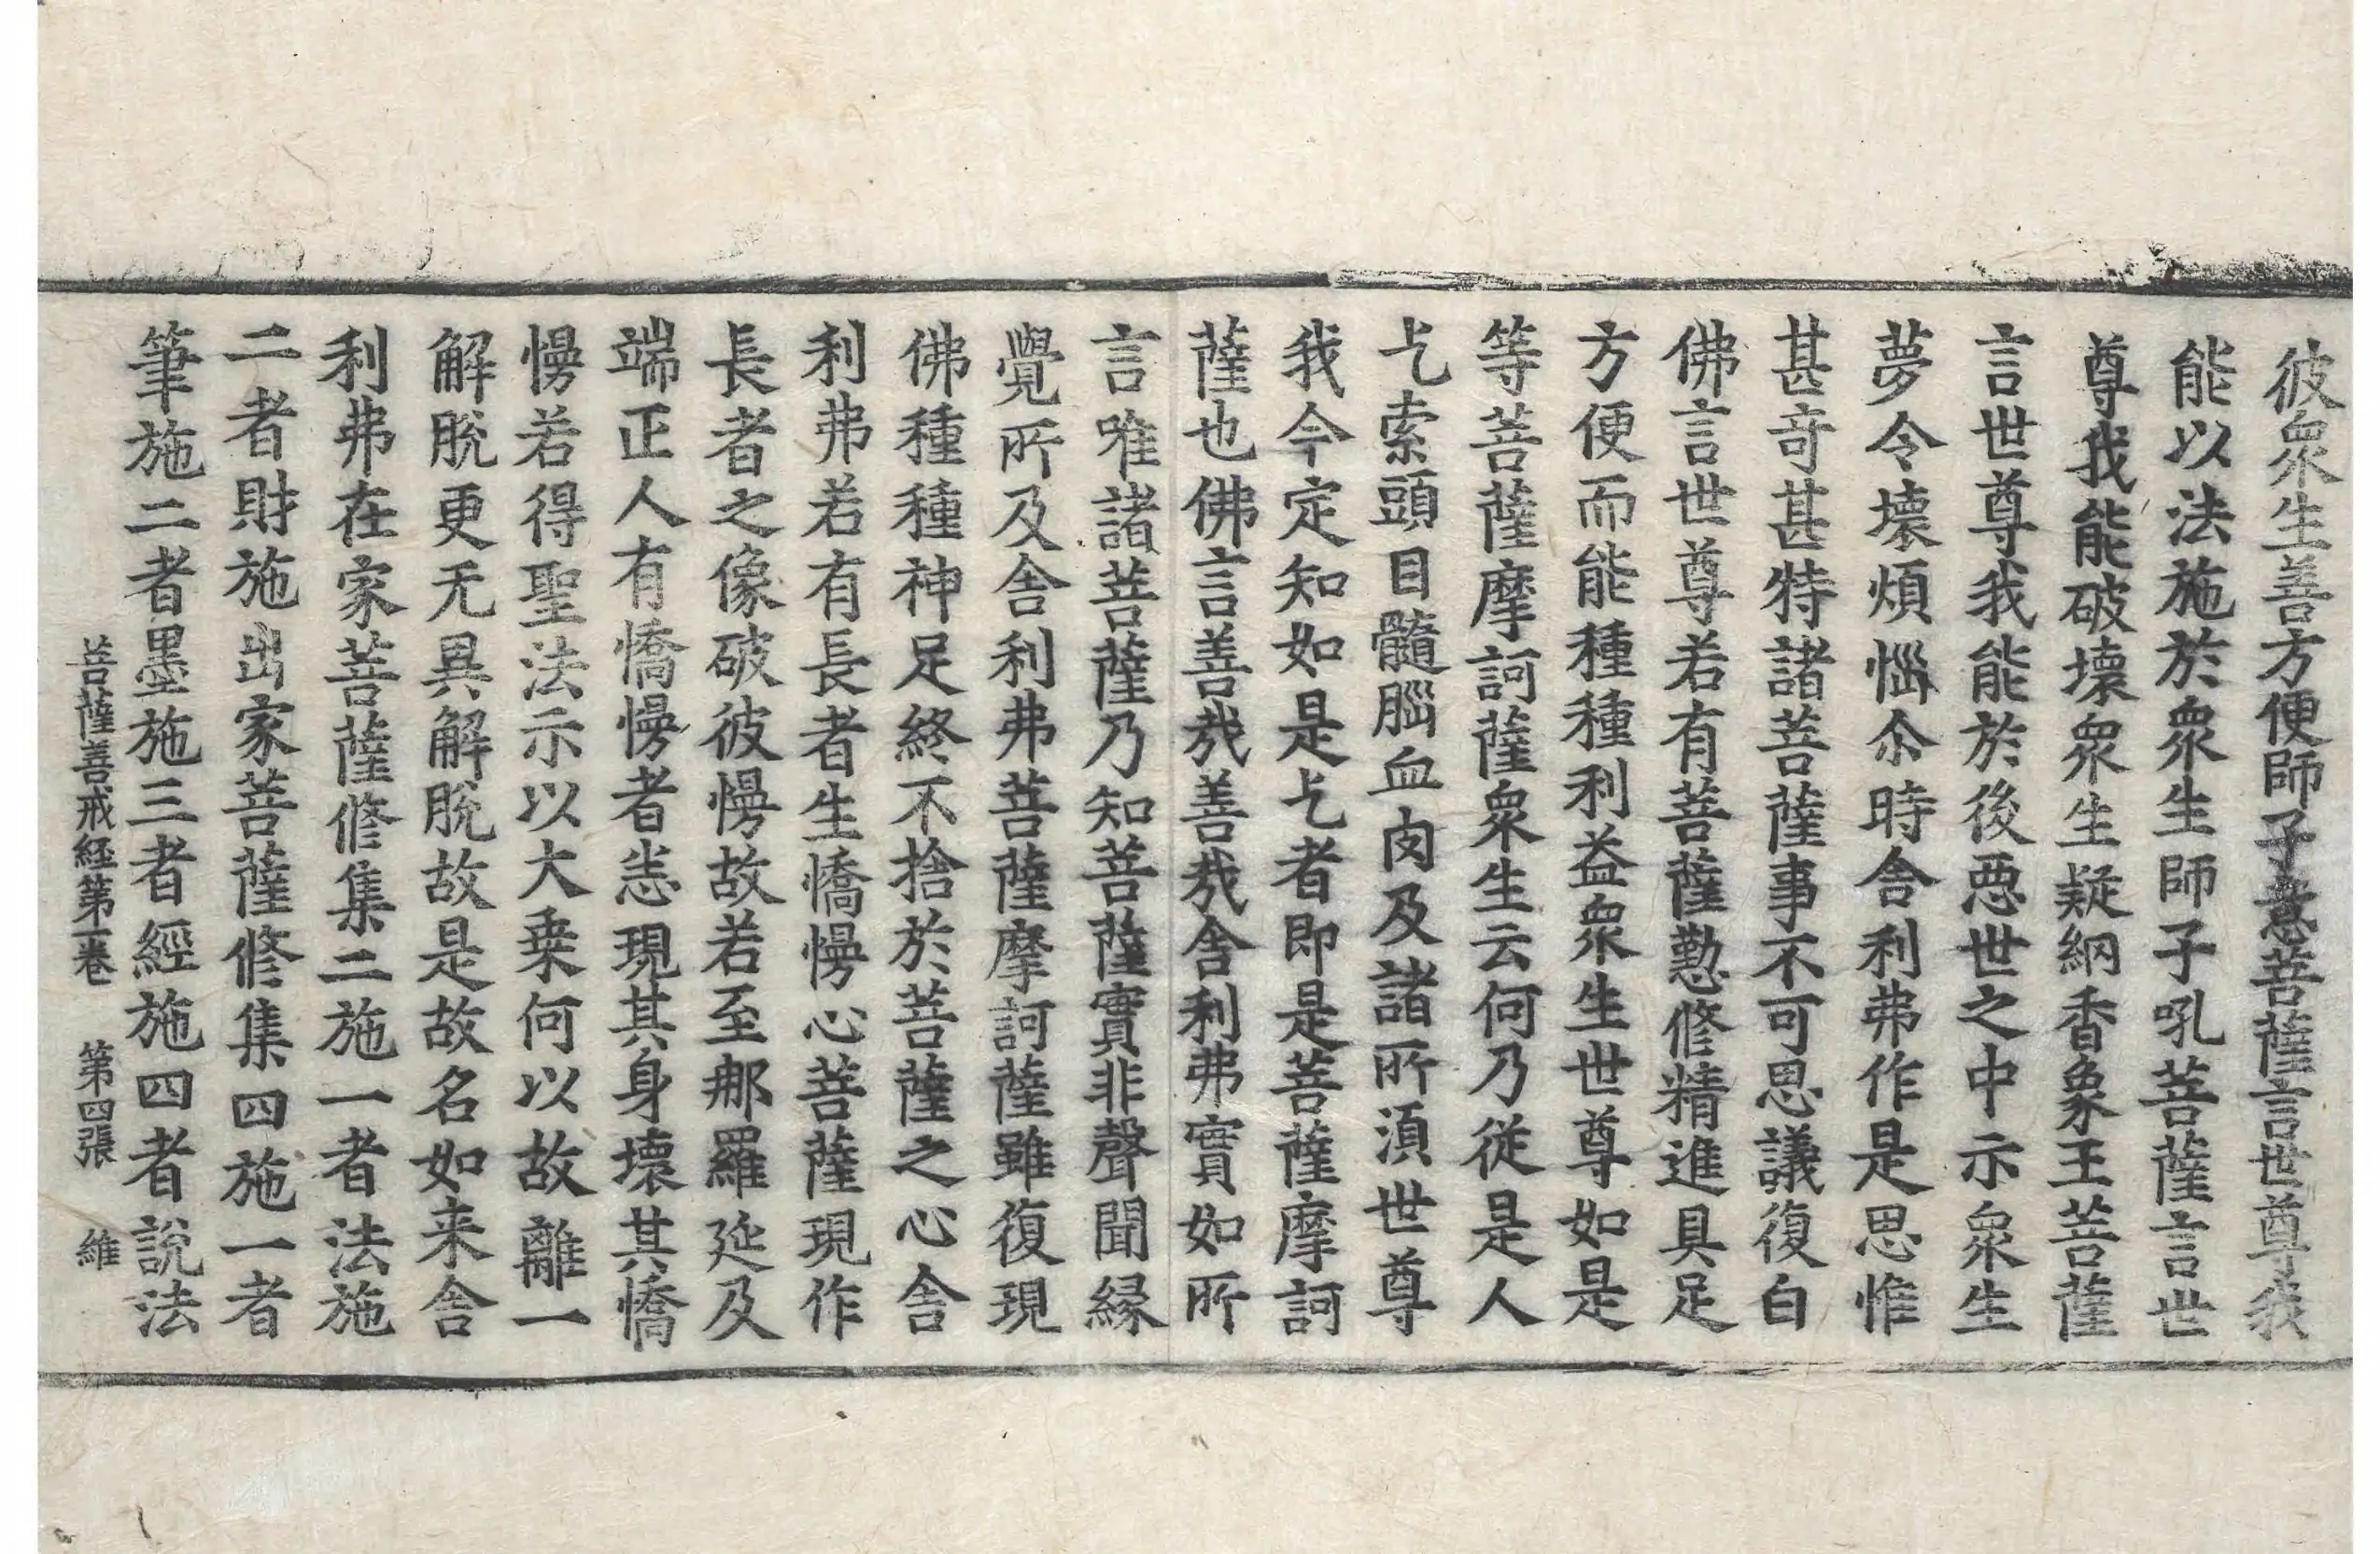 彼衆生善方便師子意菩薩言世尊我
能以法施於衆生師子吼菩薩言世
尊我能破壞衆生疑網香象王菩薩
言世尊我能於後惡世之中示衆生
夢令壞煩惱尒時舍利弗作是思惟
甚奇甚特諸菩薩事不可思議復白
佛言世尊若有菩薩懃修精進具足
方便而能種種利益衆生世尊如是
等菩薩摩訶薩衆生云何乃從是人
乞索頭目髓腦血肉及諸所須世尊
我今定知如是乞者即是菩薩摩訶
薩也佛言善哉善哉舍利弗實如所
言唯諸菩薩乃知菩薩實非聲聞緣
覺所及舍利弗菩薩摩訶薩雖復現
佛種種神足終不捨於菩薩之心舍
利弗若有長者生憍慢心菩薩現作
長者之像破彼慢故若至那羅延及
端正人有憍慢者悉現其身壞其憍
慢若得聖法示以大乗何以故離一
解脫更无異解脫故是故名如来舍
利弗在家菩薩修集二施一者法施
二者財施出家菩薩修集四施一者
筆施二者墨施三者經施四者說法
菩薩善戒経第一卷　第四張　維